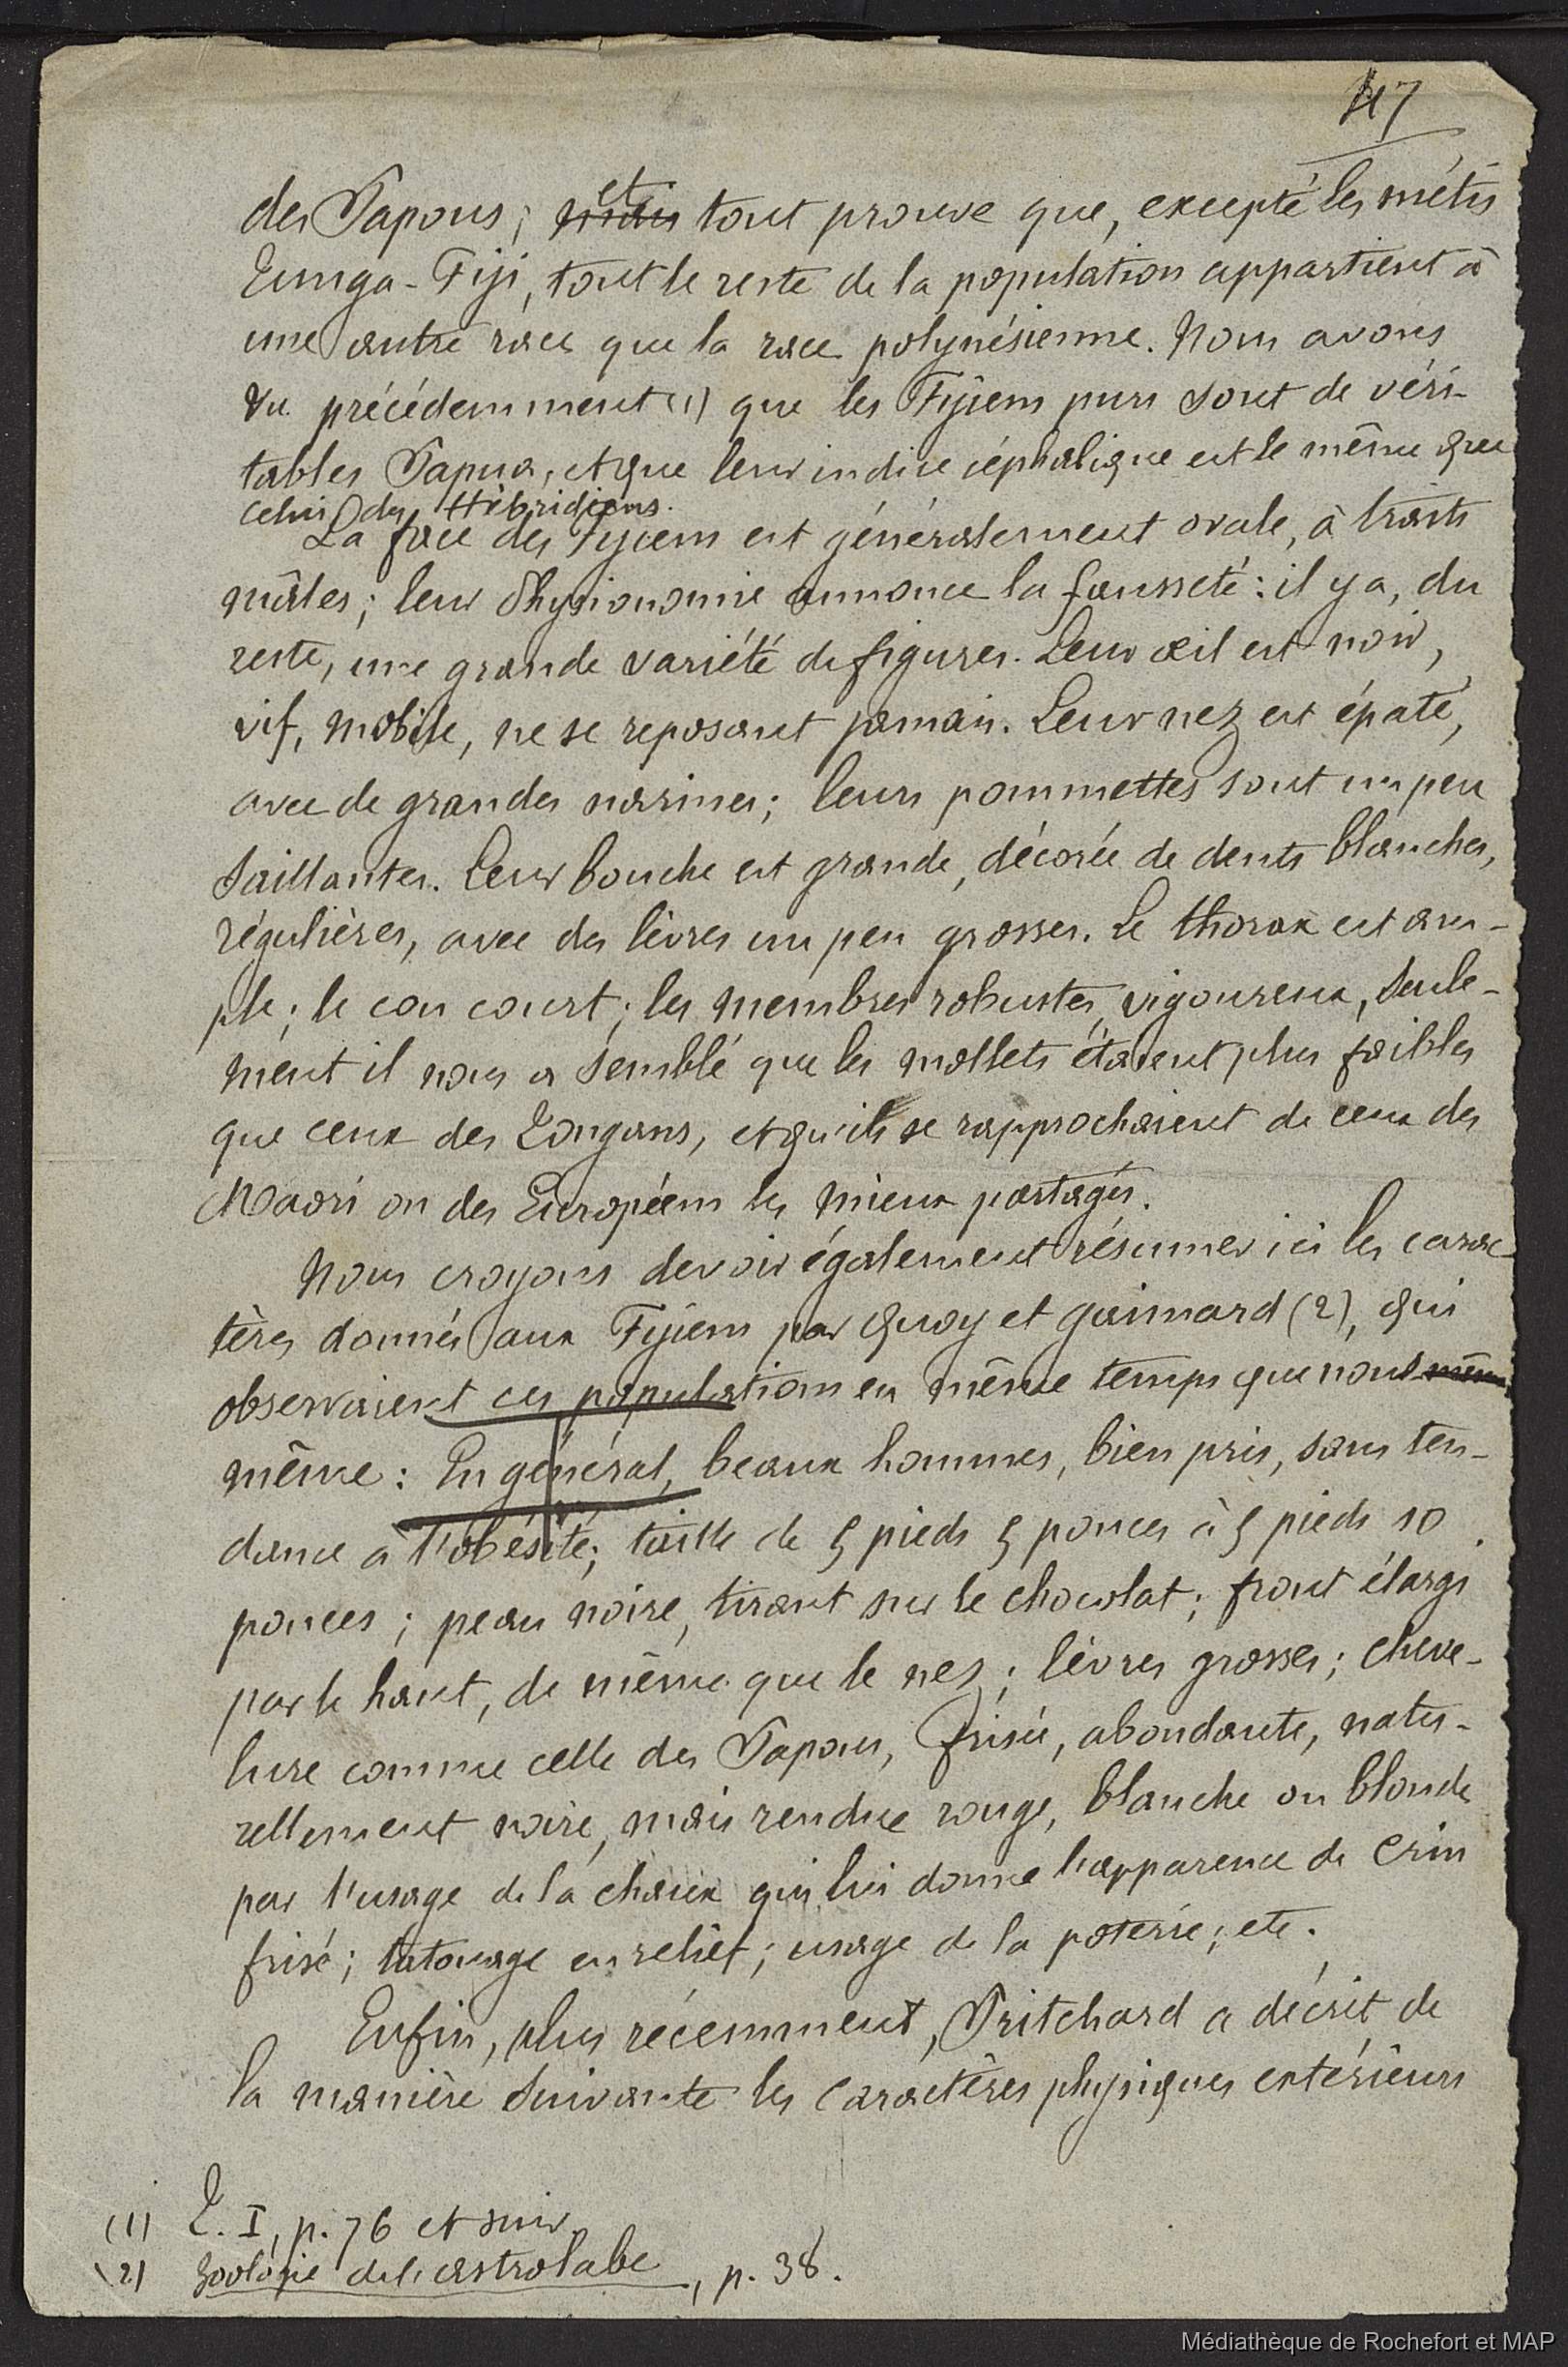 47
des Papous; et tout prouve que, excepté les métis
Tunga-Fiji, tout le reste de la population appartient à
une autre race que la race polynésienne. Nous avons
vu précédemment (1) que les Fijiens purs sont de véri-
tables Papua, et que leur indice céphalique est le même que
celui des Hébridiens.
La face des Fijiens est généralement ovale, à traits
mâles; leur physionomie annonce la fausseté: il y a, du
reste, une grande variété de figures. Leur œil est noir,
vif, mobile, ne se reposant jamais. Leur nez est épaté,
avec de grandes narines; leurs pommettes sont un peu
saillantes. Leur bouche est grande, décorée de dents blanches,
régulières, avec des lèvres un peu grosses. Le thorax est am-
ple; le cou court; les membres robustes, vigoureux, seule-
ment il nous a semblé que les mollets étaient plus faibles
que ceux des Tongans, et qu'ils se rapprochaient de ceux des
Maori ou des Européens les mieux partagés.
Nous croyons devoir également résumer ici les carac
tères donnés aux Fijiens par Quoy et Gaimard (2), qui
observaient ces populations en même temps que nous
même: En général, beaux hommes, bien pris, sans ten-
dance à l'obésité; taille de 5 pieds 5 pouces à 5 pieds 10
pouces; peau noire, tirant sur le chocolat; front élargi
par le haut, de même que le nez; lèvres grosses; cheve-
lure comme celle des Papous, frisée, abondante, natu-
rellement noire, mais rendue rouge, blanche ou blonde
par l'usage de la chaux qui lui donne l'apparence de crin
frisé; tatouage en relief; usage de la poterie; etc.
Enfin, plus récemment, Pritchard a décrit de
la manière suivante les caractères physiques extérieurs
(1) T. I, p. 76 et suiv.
(2) Zoologie de l'astrolabe, p. 38.
Médiathèque de Rochefort et MAP